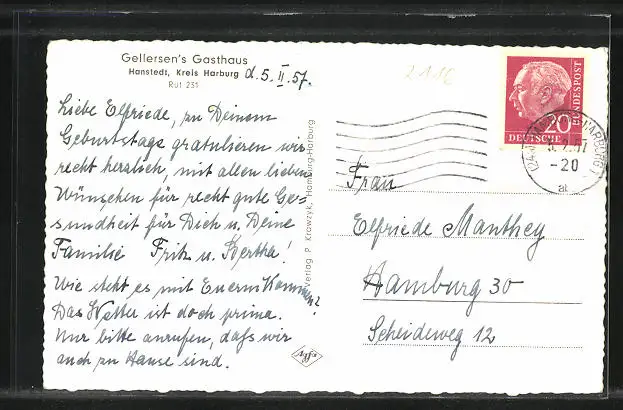 Gellersen's Gasthaus
Hanstedt, Kreis Harburg d. 5. II. 57.
Ruf 231
Liebe Elfriede, zu Deinem
Geburtstage gratulieren wir
recht herzlich, mit allen lieben
Wünschen für recht gute Ge=
sundheit für Dich u. Deine
Familie Fritz u. Bertha!
Wie steht es mit Euerm Kommen?
Das Wetter ist doch prima.
Nur bitte anrufen, daß wir
auch zu Hause sind.
Verlag P. Krawzyk, Hamburg-Harburg
Agfa
2116
DEUTSCHE
BUNDESPOST
20
HARBURG)
5.2.57
-20
at
Frau
Elfriede Manthey
Hamburg 30
Scheideweg 12